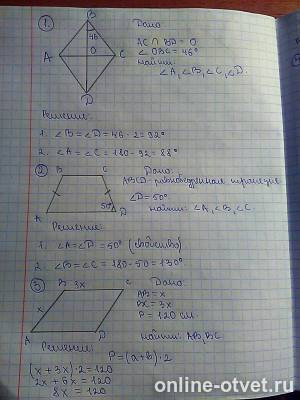 1.
B
46
Дано:
AC ∩ BD = O
A
O
C
∠OBC = 46°
найти:
∠A, ∠B, ∠C, ∠D.
D
Решение:
1. ∠B = ∠D = 46 · 2 = 92°
2. ∠A = ∠C = 180 - 92 = 88°
2
Дано:
B
C
ABCD - равнобедренная трапеция
50°
∠D = 50°
A
D
найти: ∠A, ∠B, ∠C.
Решение:
1. ∠A = ∠D = 50° (свойство)
2. ∠B = ∠C = 180 - 50 = 130°
3
B
3x
C
Дано:
AB = x
x
BC = 3x
P = 120 см.
A
D
найти: AB, BC
Решение:
P = (a + b) · 2
(x + 3x) · 2 = 120
2x + 6x = 120
8x = 120
online-otvet.ru